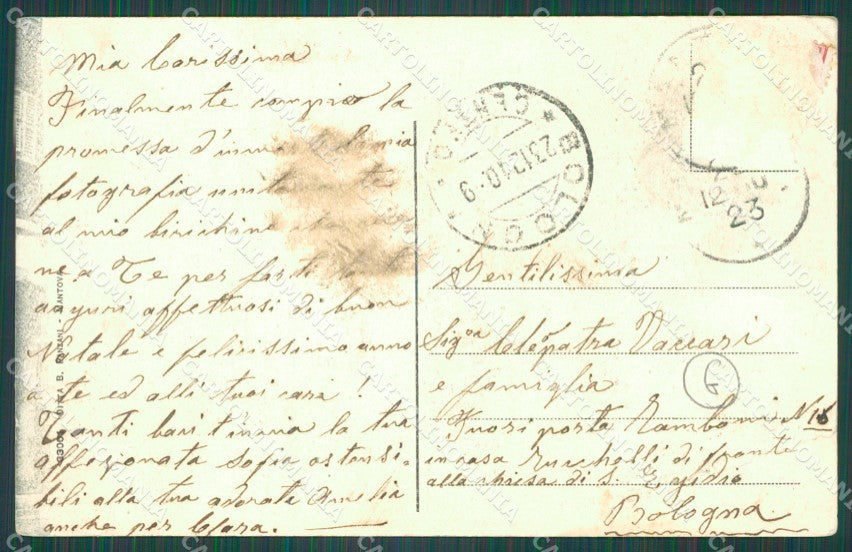 Mia Carissima
Finalmente compio la
promessa d'inv mia
fotografia
al mio birichino
ne a Te per farti
auguri affettuosi di buon
Natale e felicissimo anno
a te ed alli tuoi cari!
Tanti baci t'invia la tua
affezionata Sofia ostensi-
bili alla tua adorata Amelia
anche per Clara.
DITTA B. MANTOVA
BOLOGNA
CENTRO
23.12.10.9
12
23
Gentilissima
Sigra Cleopatra Vaccari
e famiglia
Fuori porta Zamboni N 16
in casa di fronte
alla chiesa di S. Egidio
Bologna
G
CARTOLINOMANIA